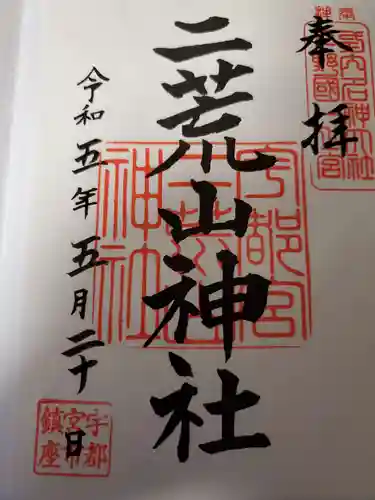 奉拝
二荒山神社
令和五年五月二十日
宇都宮
二荒山
神社
宇都
宮市
鎮座